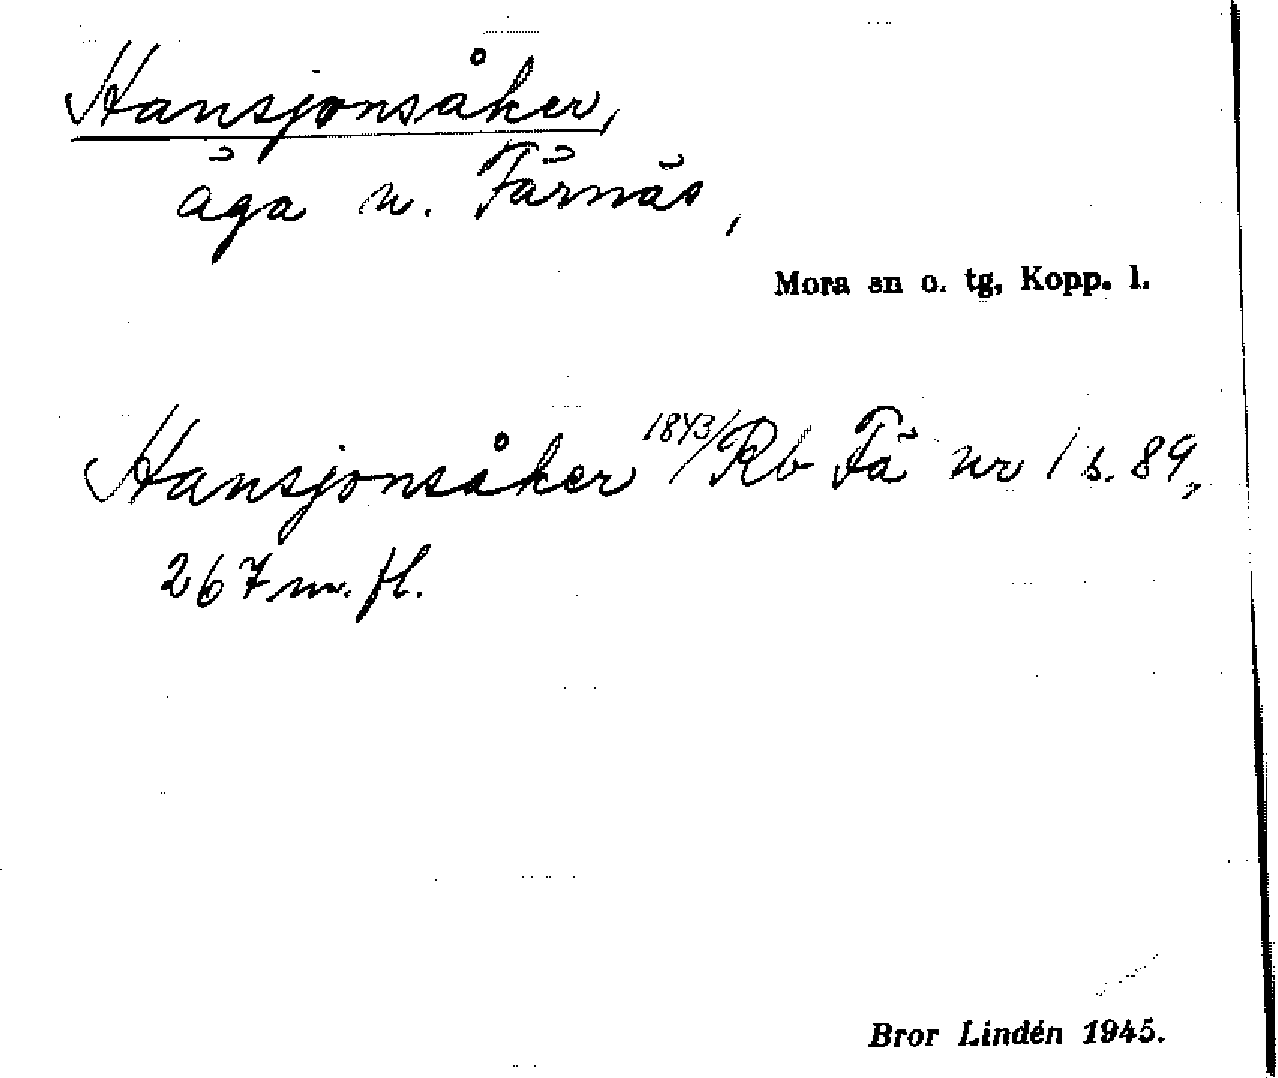 Hansjonsåker,
äga n. Färnäs,
Mora sn o. tg, Kopp. l.
Hansjonsåker 1843/Rb Fä nr 1 s. 89,
267 m. fl.
Bror Lindén 1945.